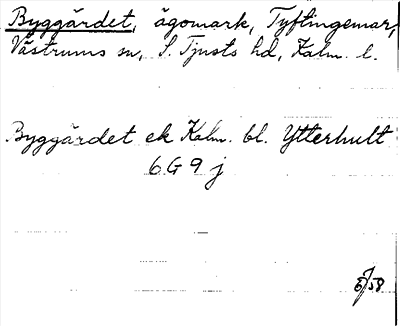 Byggärdet, ägomark, Tyftingemar,
Västrums sn, S. Tjusts hd, Kalm. l.
Byggärdet ek Kalm. bl. Ytterhult
6 G 9 j
6/58